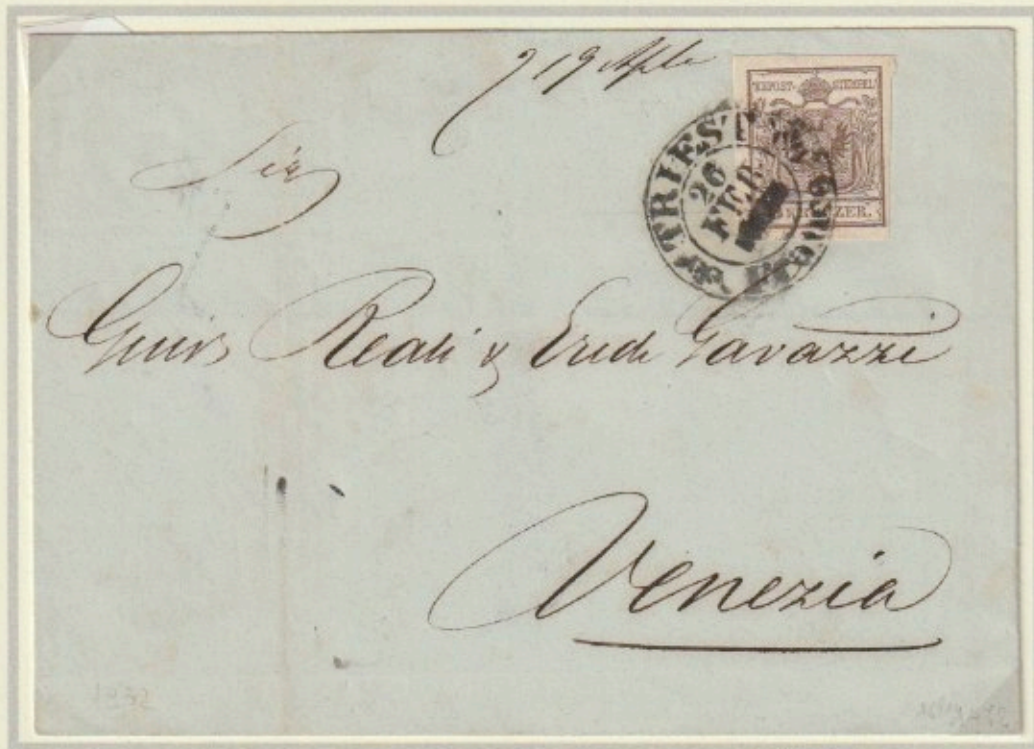 19
KKPOST-STEMPEL
KREUZER.
TRIEST
26
FEB.
Sig
Reali & Eredi Gavazzi
Venezia